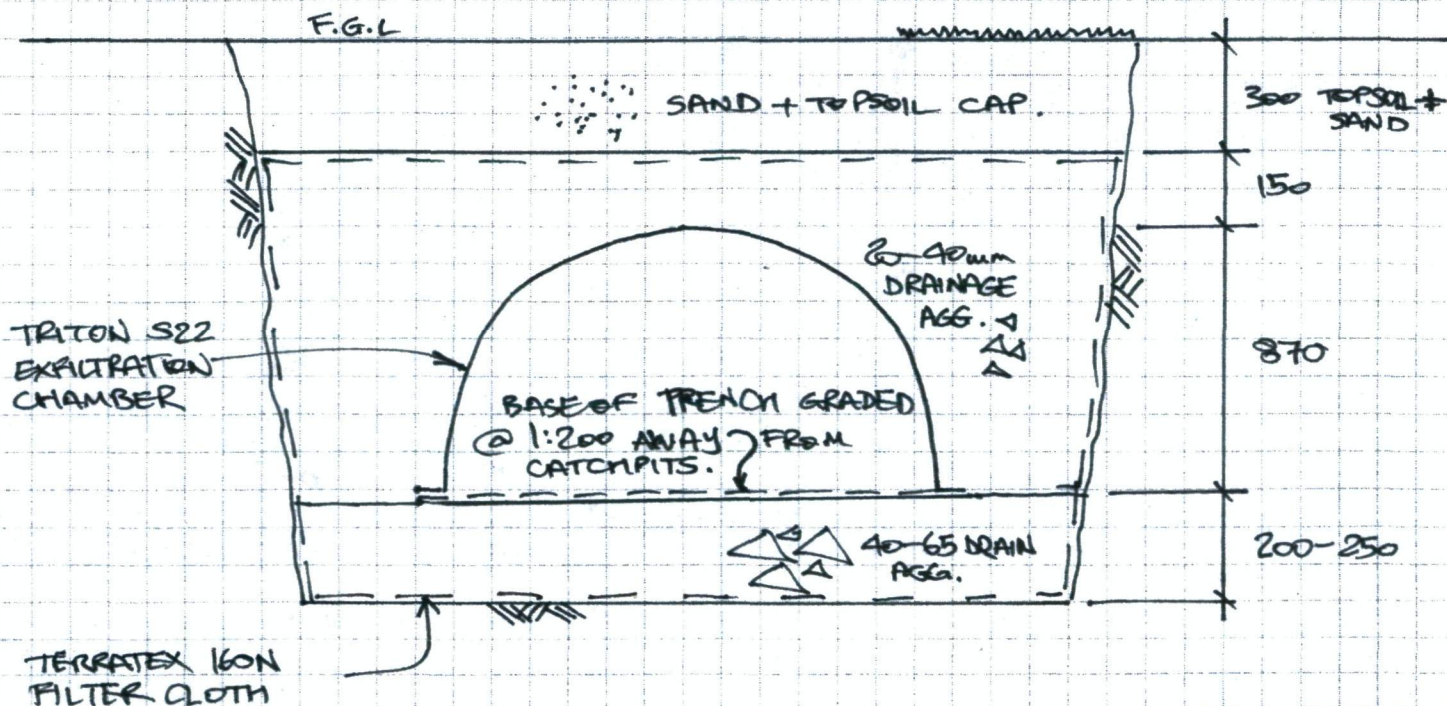 F.G.L
SAND + TOPSOIL CAP.
300 TOPSOIL +
SAND
150
20-40mm
DRAINAGE
AGG.
870
TRITON S22
EXFILTRATION
CHAMBER
BASE OF TRENCH GRADED
@ 1:200 AWAY FROM
CATCHPITS.
40-65 DRAIN
AGG.
200-250
TERRATEX 160N
FILTER CLOTH